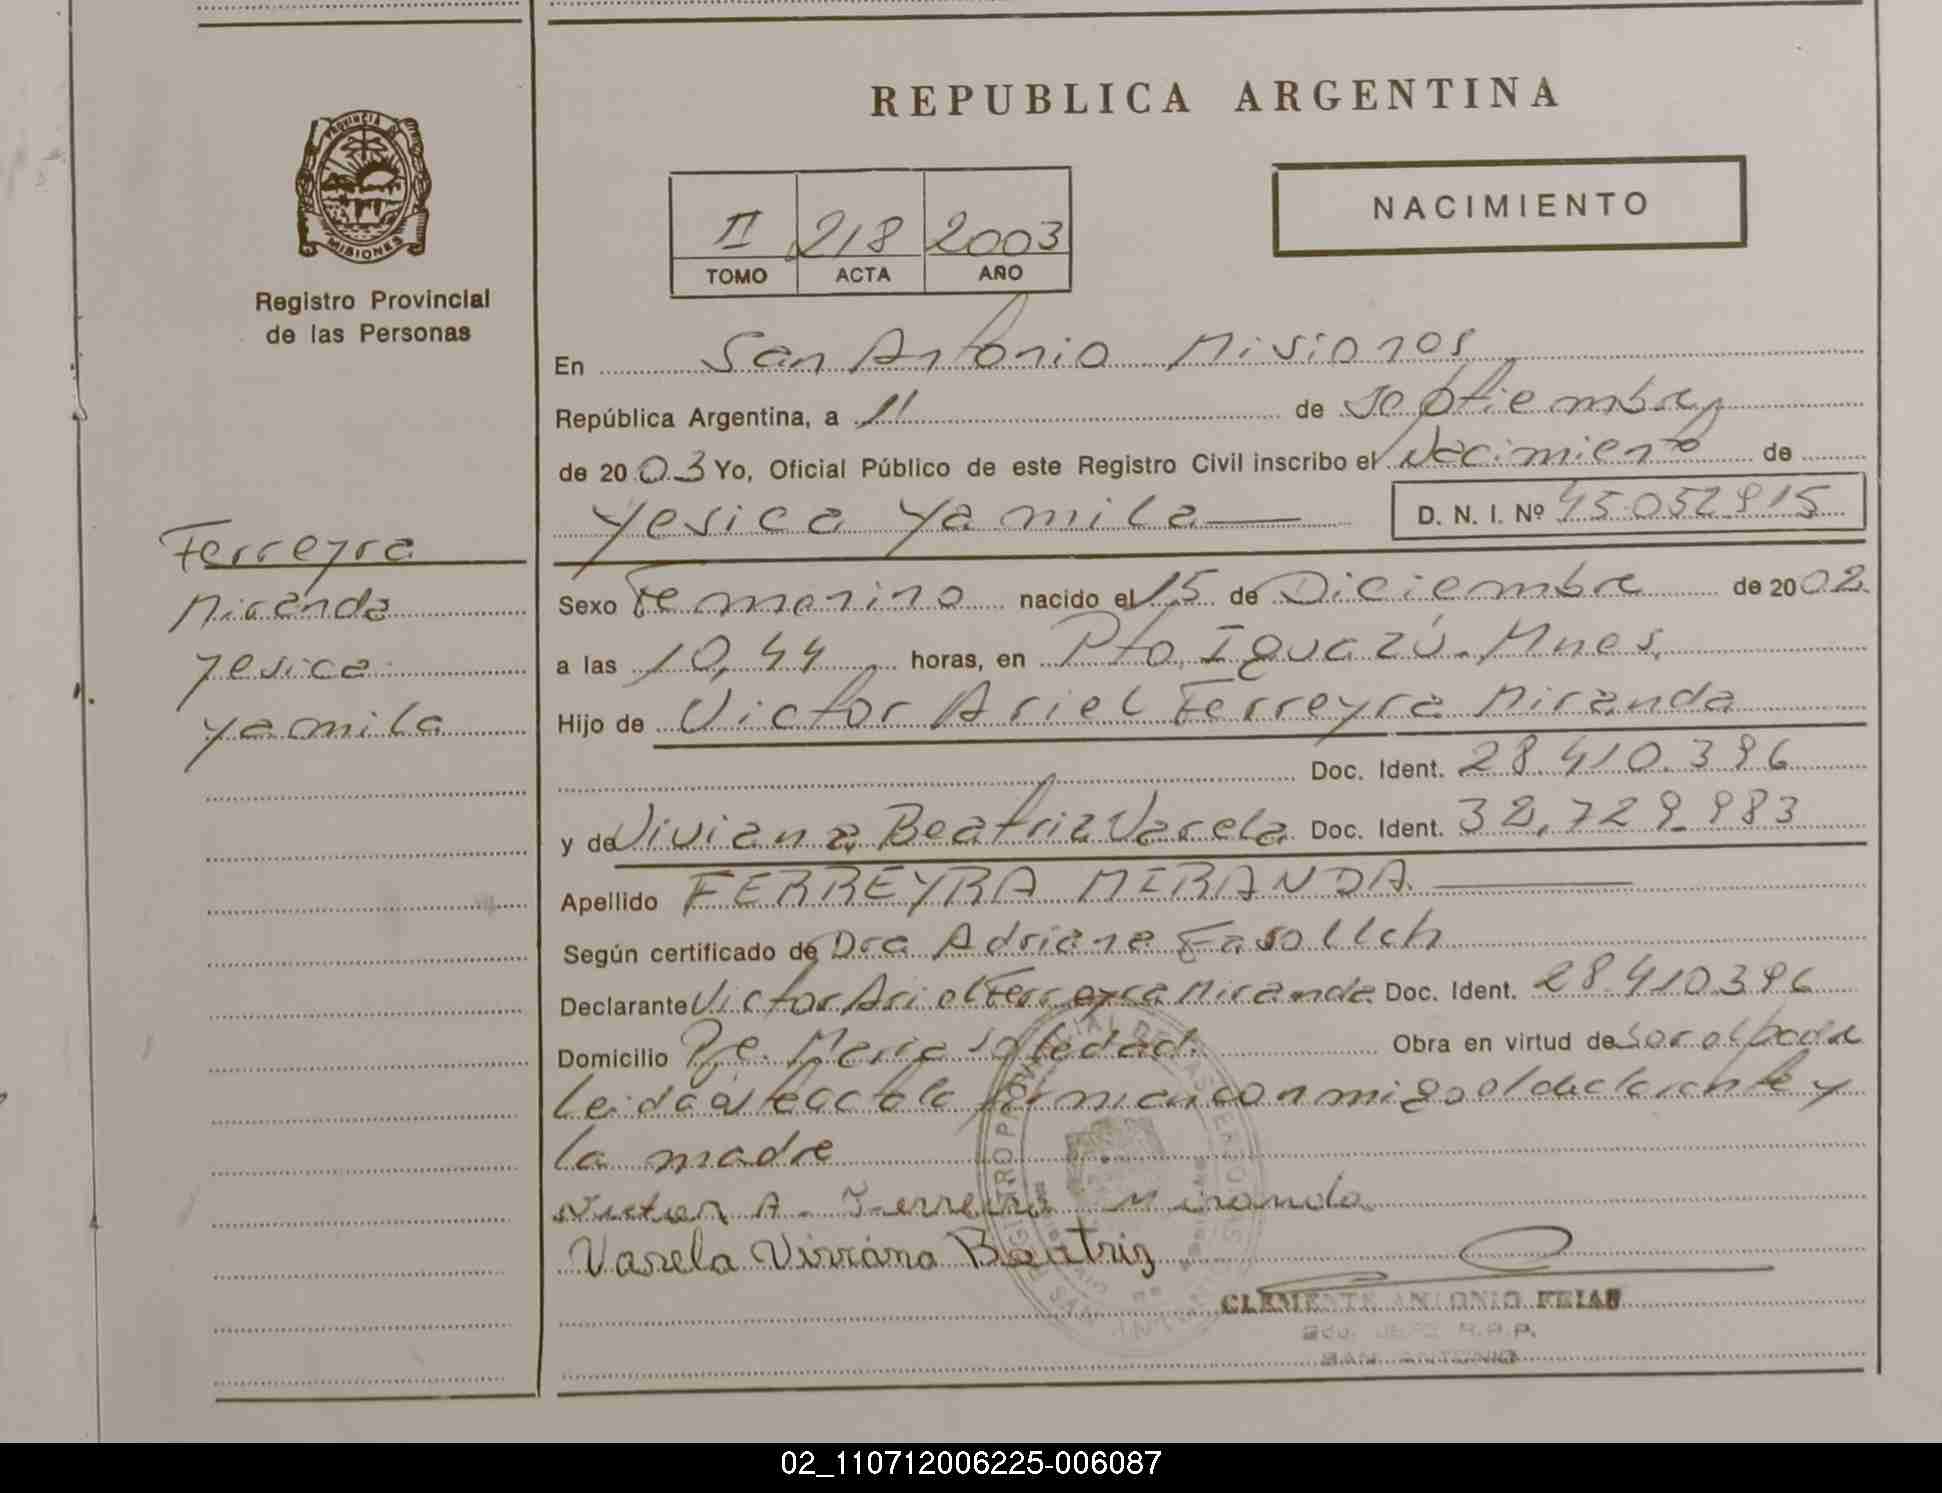 REPUBLICA ARGENTINA
PROVINCIA DE
MISIONES
Registro Provincial
de las Personas
NACIMIENTO
II 218 2003
TOMO ACTA AÑO
En San Antonio Misiones
República Argentina, a 11 de septiembre
de 2003 Yo, Oficial Público de este Registro Civil inscribo el Nacimiento de
Yesica Yamila D. N. I. Nº 45.052.915
Ferreyra
Miranda
Yesica
Yamila
Sexo Femenino nacido el 15 de Diciembre de 2002
a las 10,44 horas, en Pto. Iguazú. Mnes.
Hijo de Victor Ariel Ferreyra Miranda
Doc. Ident. 28.410.396
y de Viviana Beatriz Varela Doc. Ident. 32.729.983
Apellido FERREYRA MIRANDA.
Según certificado de Dra Adriana
Declarante Victor Ariel Ferreyra Miranda Doc. Ident. 28.410.396
Domicilio Pje. Maria Soledad. Obra en virtud de ser el padre
Leida el acta la firman conmigo el declarante y
la madre
Victor A. Ferreira Miranda
Varela Viviana Beatriz
CLEMENTE ANTONIO FRIAS
R.P.P.
SAN ANTONIO
02_110712006225-006087